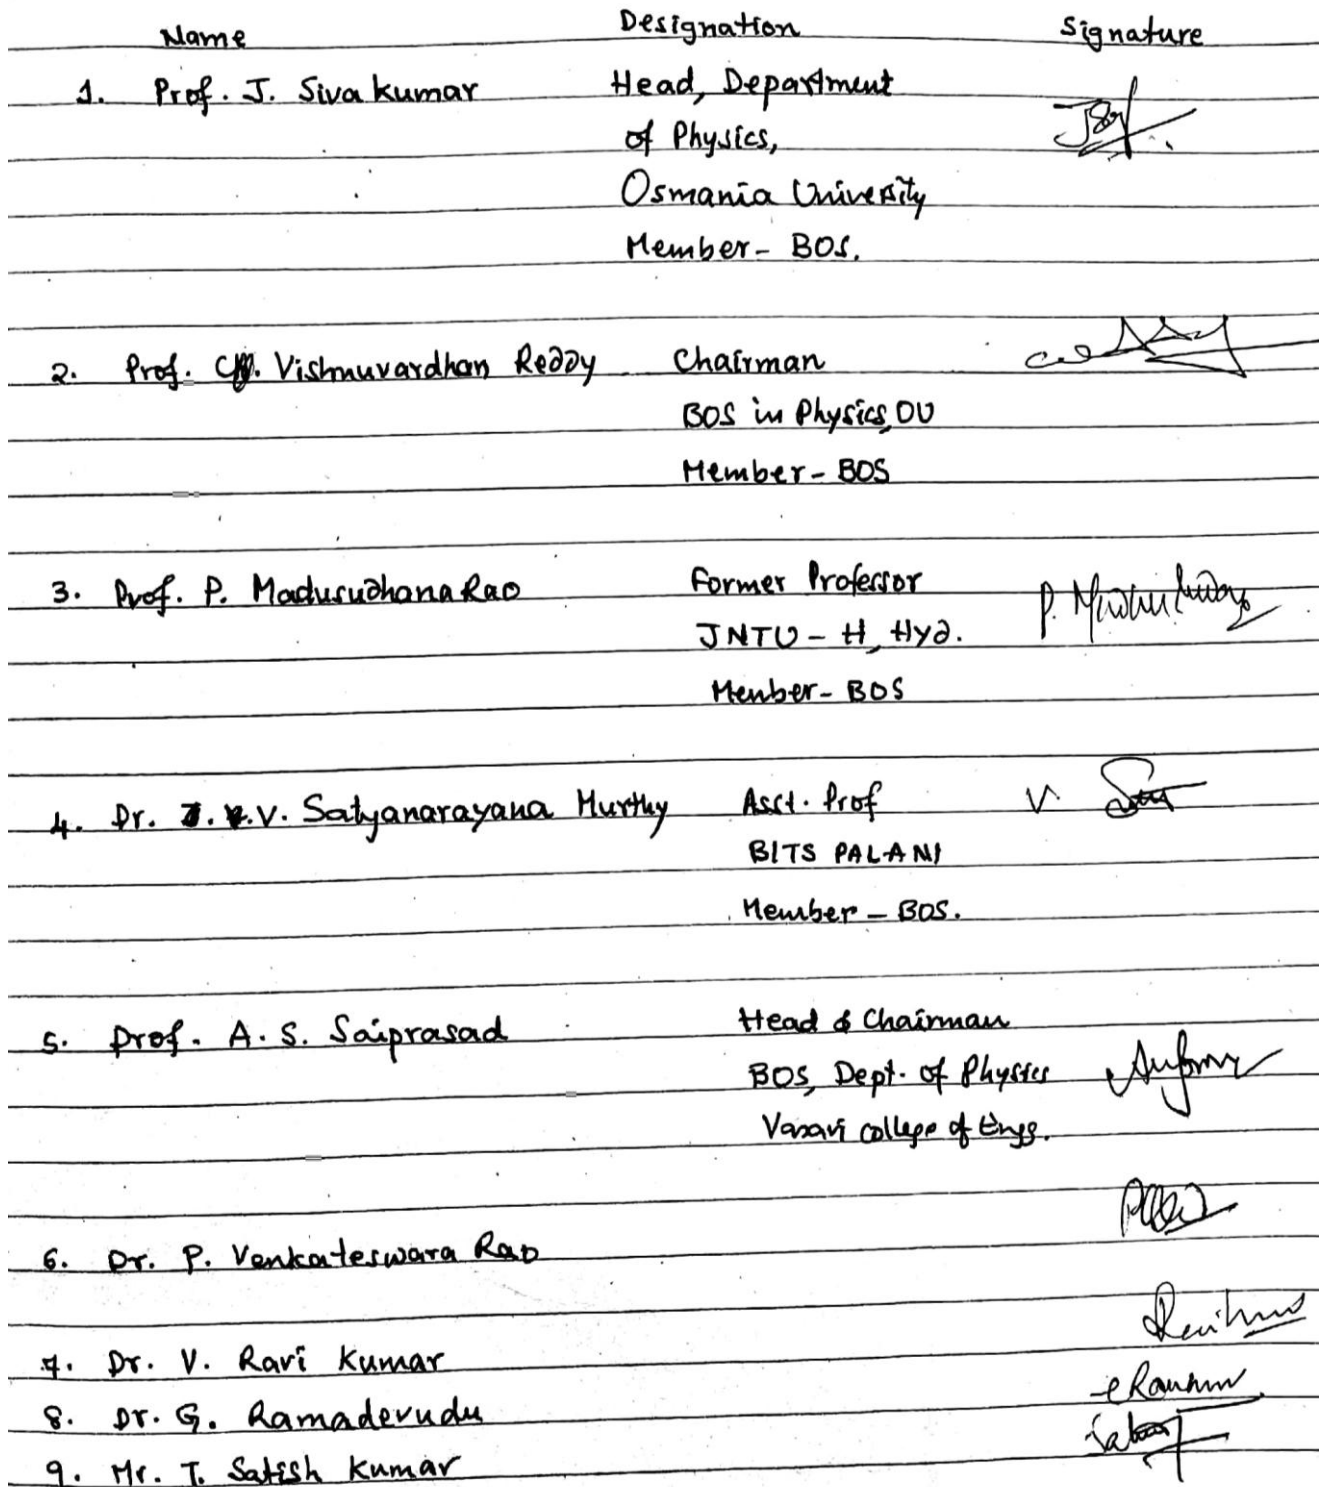 Name Designation Signature
1. Prof. J. Siva kumar Head, Department
of Physics,
Osmania University
Member - BOS.
2. Prof. Ch. Vishnuvardhan Reddy Chairman
BOS in Physics, OU
Member - BOS
3. Prof. P. Madusudhana Rao Former Professor
JNTU - H, Hyd.
Member - BOS
4. Dr. V. Satyanarayana Murthy Asst. Prof V.
BITS PALANI
Member - BOS.
5. Prof. A. S. Saiprasad Head & Chairman
BOS, Dept. of Physics
Vasavi college of Engg.
6. Dr. P. Venkateswara Rao
7. Dr. V. Ravi Kumar
8. Dr. G. Ramadevudu
9. Mr. T. Satish Kumar